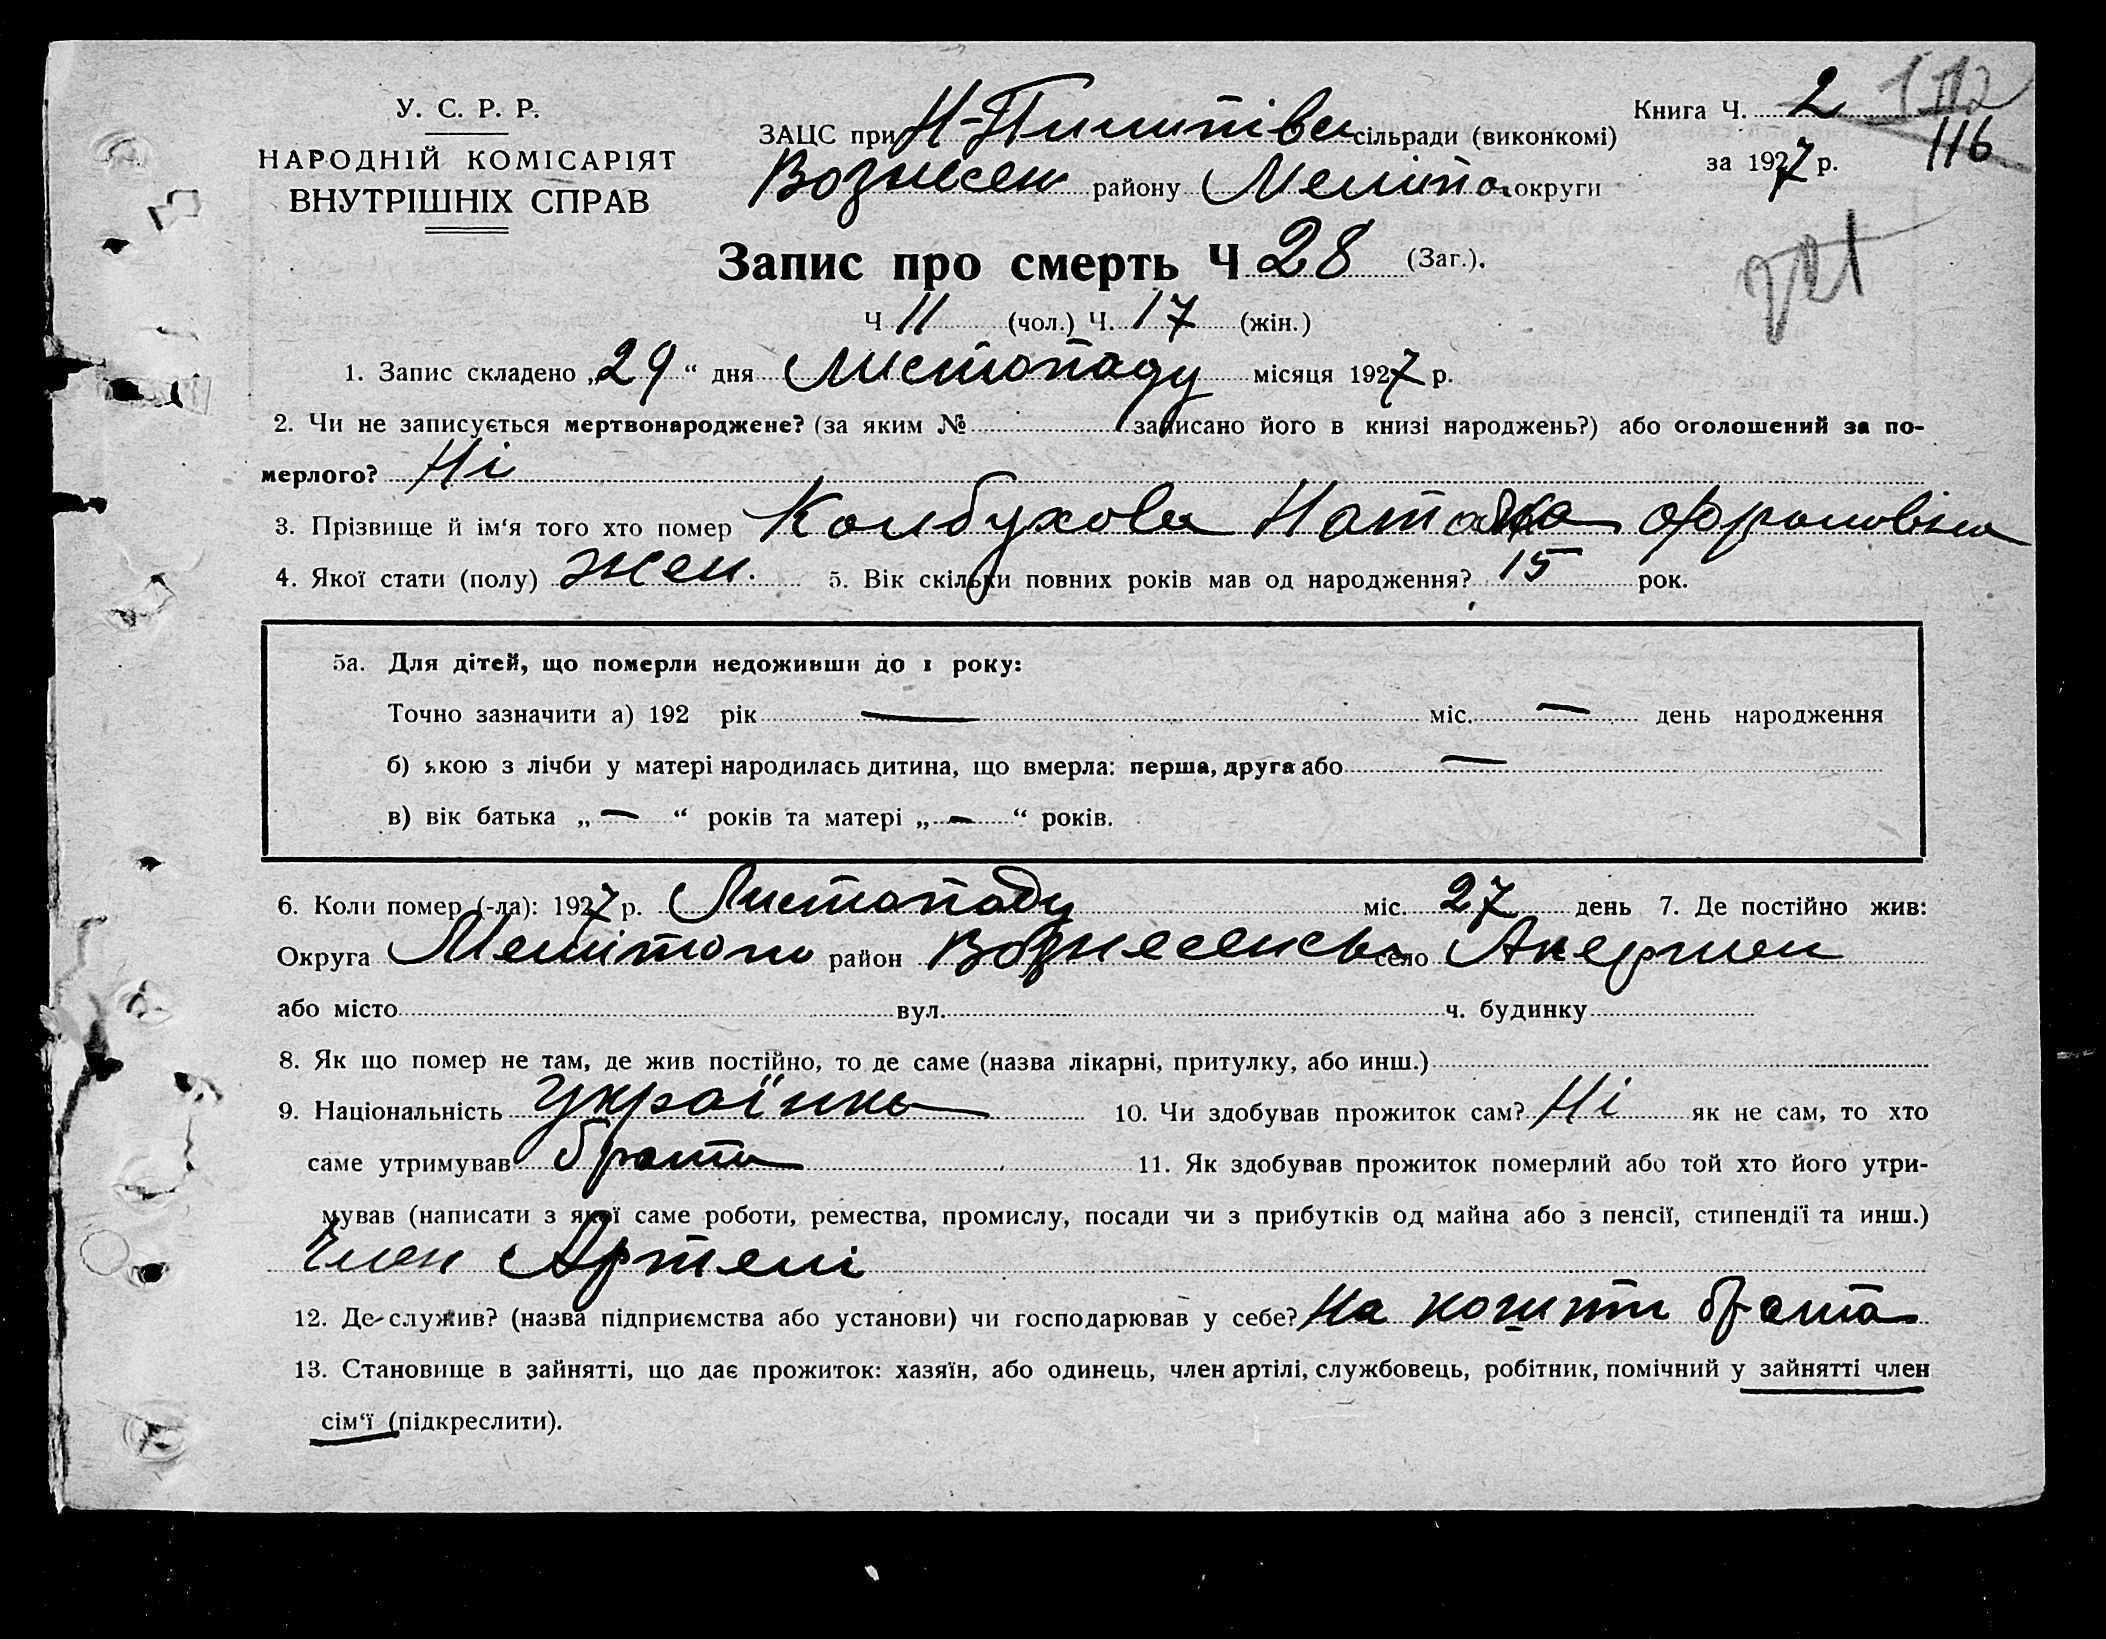 У. С. Р. Р.
НАРОДНІЙ КОМІСАРІЯТ
ВНУТРІШНІХ СПРАВ
Книга Ч. 2
116
за 1927 р.
ЗАЦС при Н-Пилипівц сільради (виконкомі)
Вознесен району Меліто округи
Запис про смерть Ч 28 (Заг.).
Ч 11 (чол.) Ч. 17 (жін.)
1. Запис складено „29“ дня Листопаду місяця 1927 р.
2. Чи не записується мертвонароджене? (за яким № записано його в книзі народжень?) або оголошений за по-
мерлого? Ні
3. Прізвище й ім'я того хто помер Колбухова
4. Якої стати (полу) жен. 5. Вік скільки повних років мав од народження? 15 рок.
5а. Для дітей, що померли недоживши до 1 року:
Точно зазначити а) 192 рік — міс. — день народження
б) якою з лічби у матері народилась дитина, що вмерла: перша, друга або —
в) вік батька „ — “ років та матері „ — “ років.
6. Коли помер (-ла): 1927 р. Листопаду міс. 27 день 7. Де постійно жив:
Округа Мелітопо район Вознесенсь село Акермен
або місто вул. ч. будинку
8. Як що помер не там, де жив постійно, то де саме (назва лікарні, притулку, або инш.)
9. Національність Українка 10. Чи здобував прожиток сам? Ні як не сам, то хто
саме утримував брати 11. Як здобував прожиток померлий або той хто його утри-
мував (написати з якої саме роботи, ремества, промислу, посади чи з прибутків од майна або з пенсії, стипендії та инш.)
Член Артелі
12. Де служив? (назва підприємства або установи) чи господарював у себе? На кошти брата
13. Становище в зайнятті, що дає прожиток: хазяїн, або одинець, член артілі, службовець, робітник, помічний у зайнятті член
сім'ї (підкреслити).